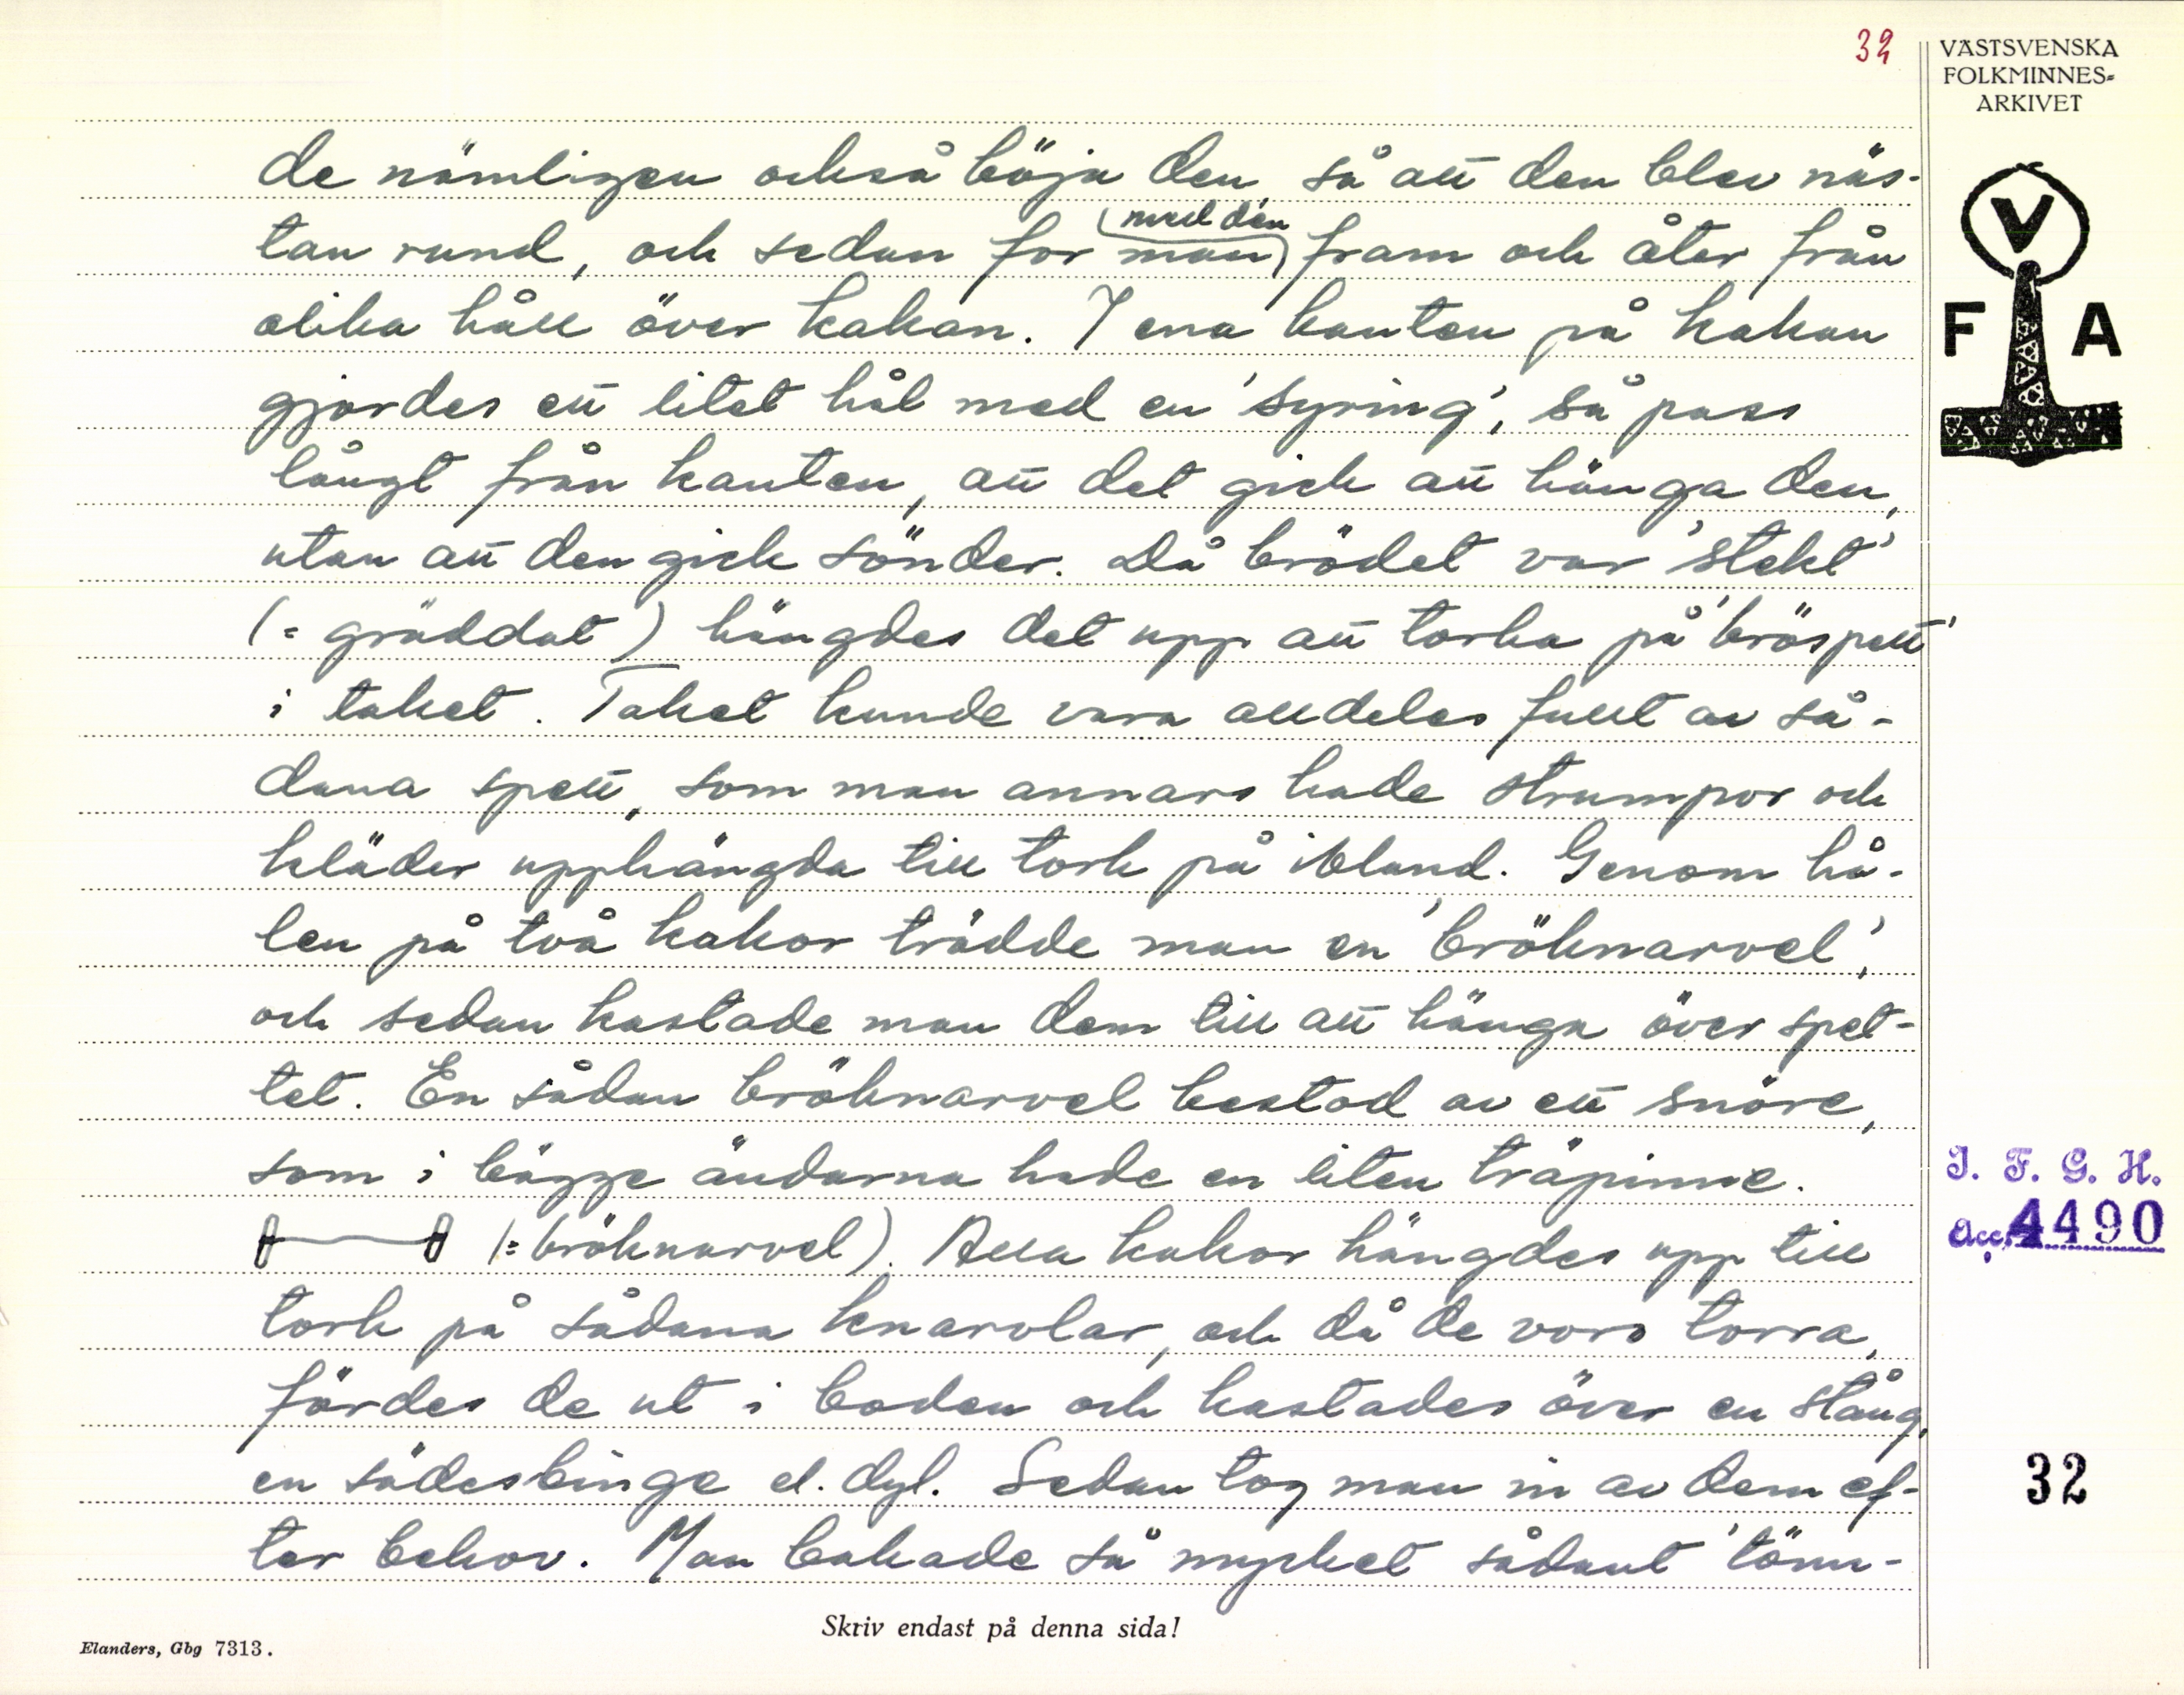 32
VÄSTSVENSKA
FOLKMINNES-
ARKIVET
V
F A
de nämligen också böja den, så att den blev näs-
tan rund, och sedan for man med den fram och åter från
olika håll över kakan. I ena kanten på kakan
gjordes ett litet hål med en 'syring', så pass
långt från kanten, att det gick att hänga den,
utan att den gick sönder. Då brödet var 'stekt'
(= gräddat) hängdes det upp att torka på 'bröspett'
i taket. Taket kunde vara alldeles fullt av så-
dana spett, som man annars hade strumpor och
kläder upphängda till tork på ibland. Genom hå-
len på två kakor trädde man en 'bröknarvel',
och sedan kastade man dem till att hänga över spet-
tet. En sådan bröknarvel bestod av ett snöre,
som i bägge ändarna hade en liten träpinne.
(= bröknarvel). Alla kakor hängdes upp till
tork på sådana knarvlar, och då de voro torra,
fördes de ut i boden och kastades över en stång,
en sädesbinge el. dyl. Sedan tog man in av dem ef-
ter behov. Man bakade så mycket sådant 'tönn-
I. F. G. H.
Acc. 4490
32
Skriv endast på denna sida!
Elanders, Gbg 7313.